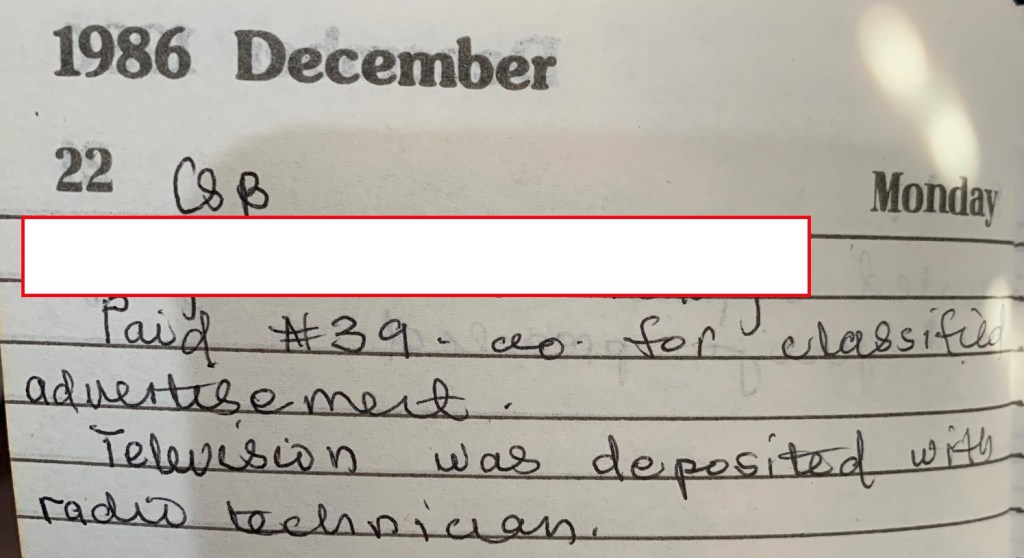 1986 December
22 CSB Monday
Paid #39.00. for classified
advertisement.
Television was deposited with
radio technician.